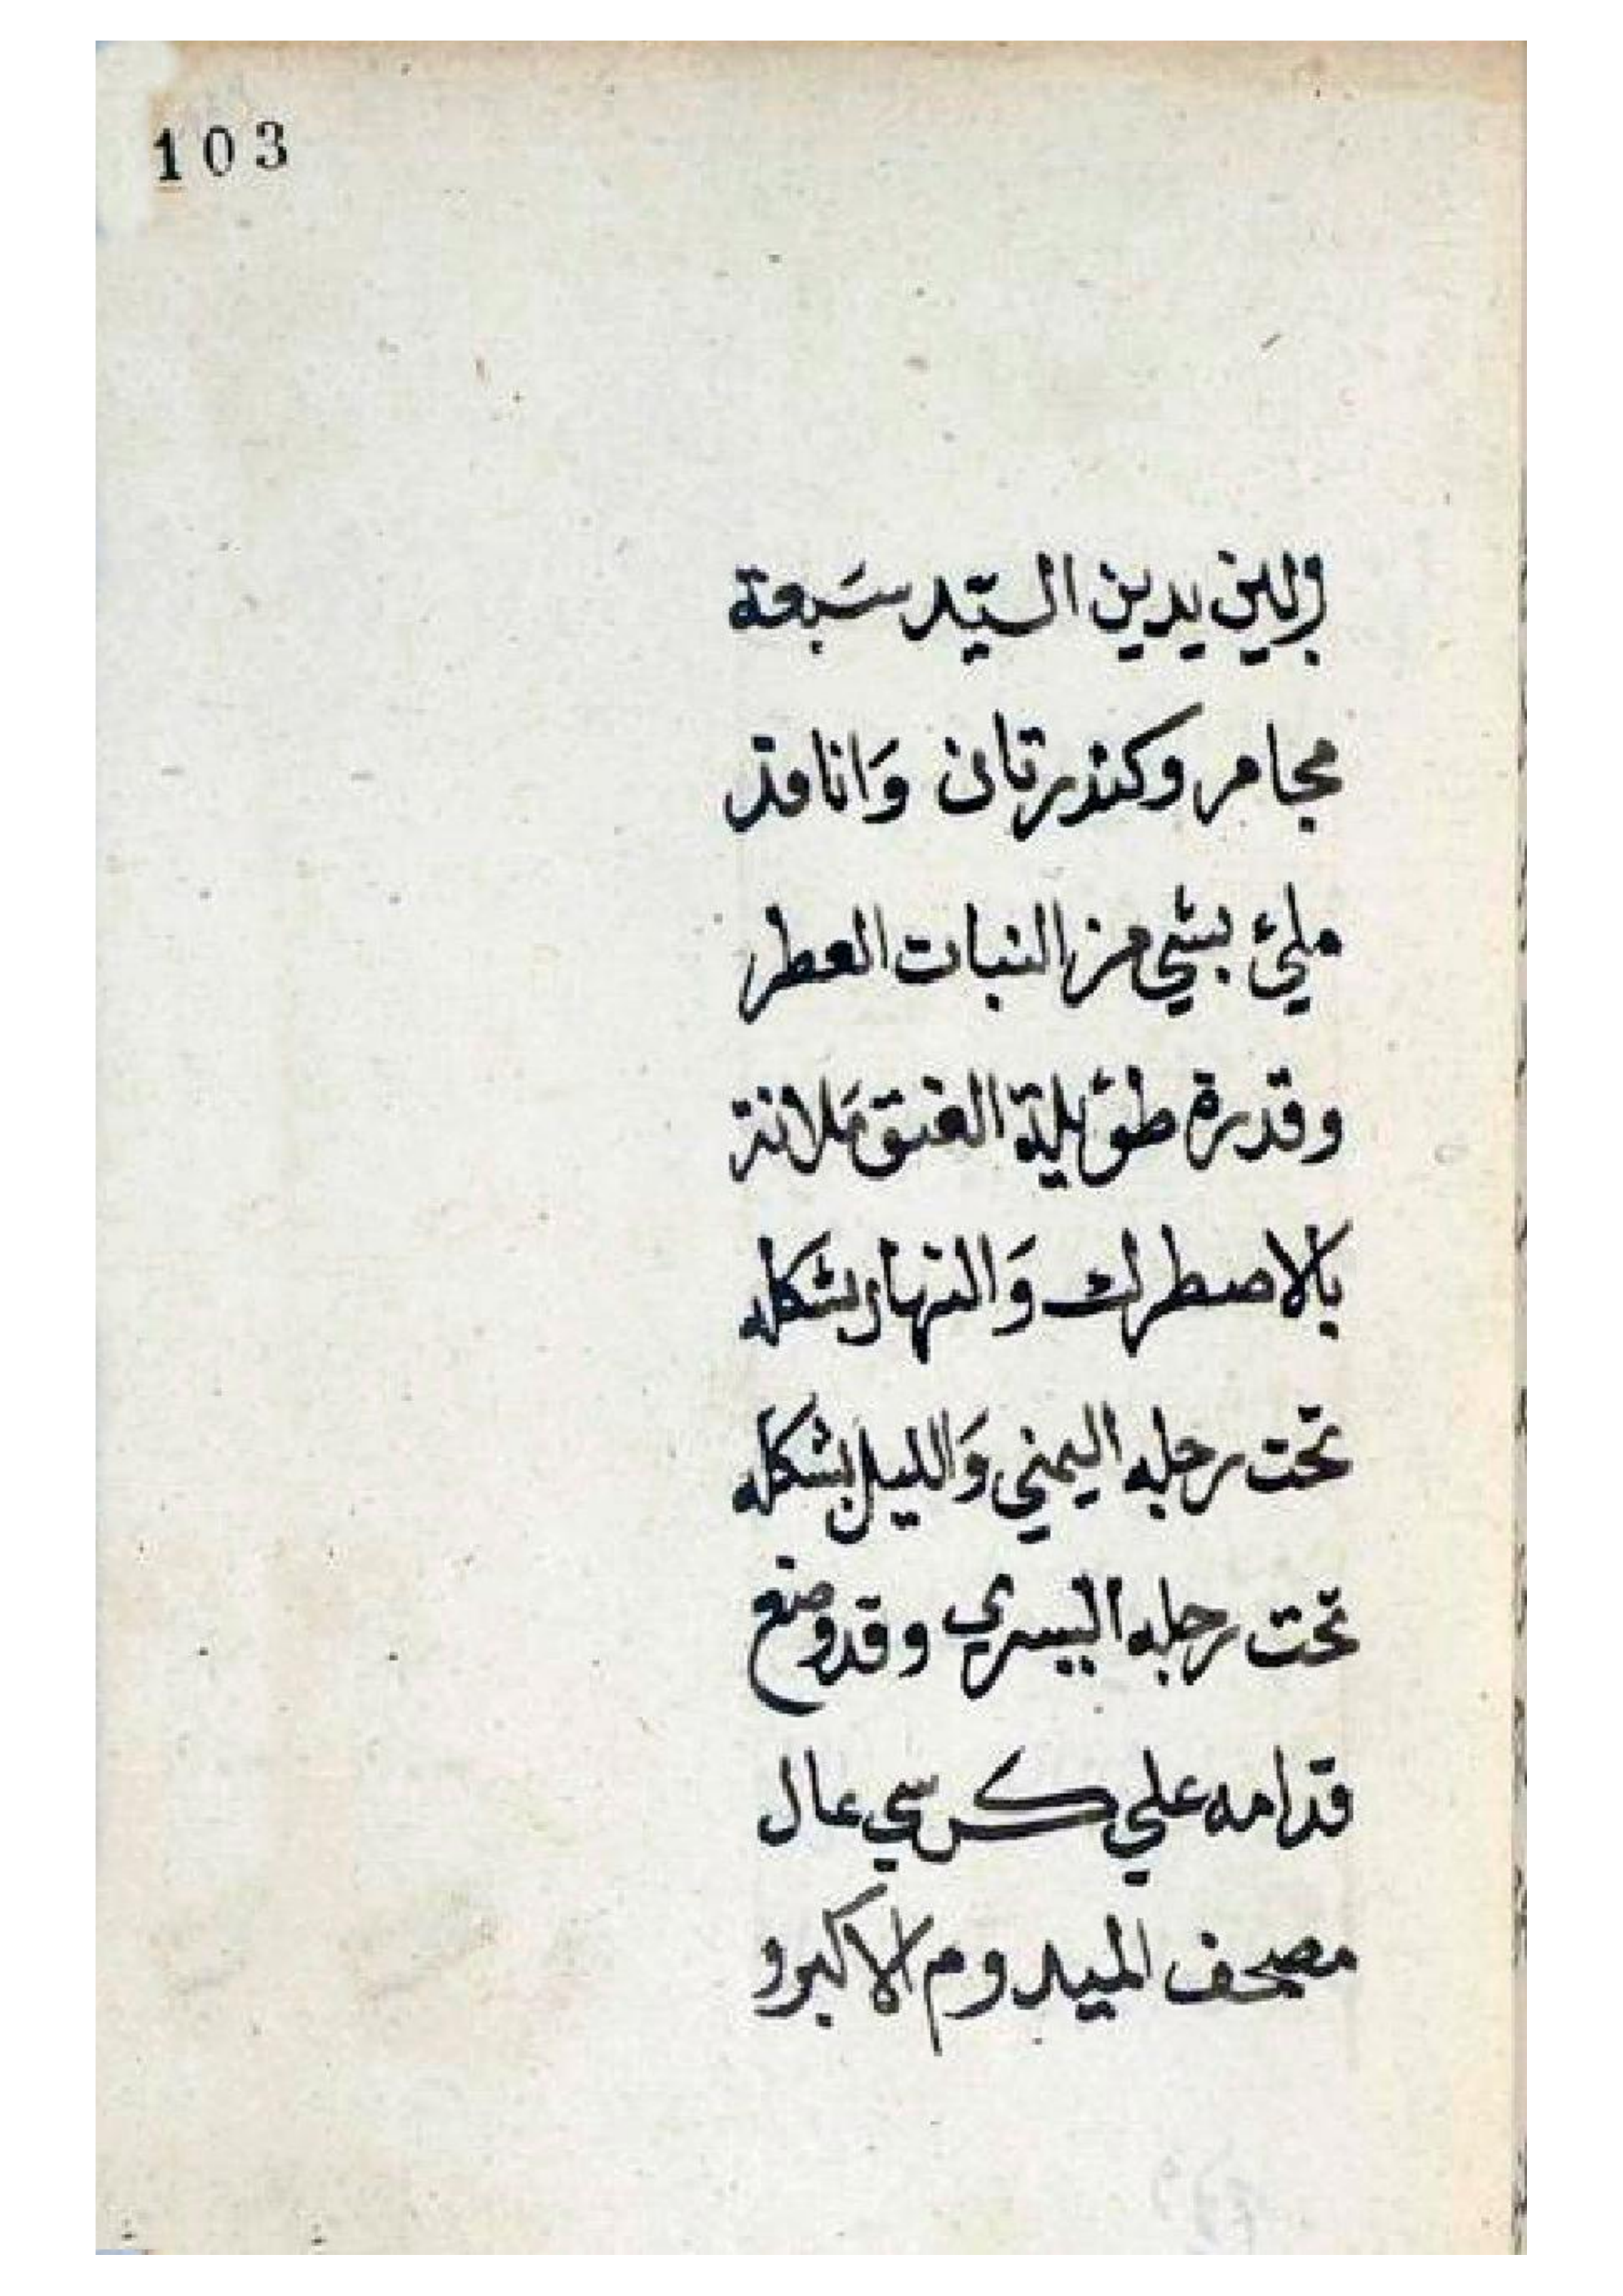 103
والين يدين السيّد سَبعة
مجامر وكنذرتان وَانا قذ
مليء بشي من النبات العطر
وقدرة طويلة العنق مَلانة
بالاصطرك وَالنهار بشكله
تحت رجله اليمني وَالليل بشكله
تحت رجله اليسري وقد وضع
قدامه علي كرسي عال
مصحف الميدوم الاكبر و